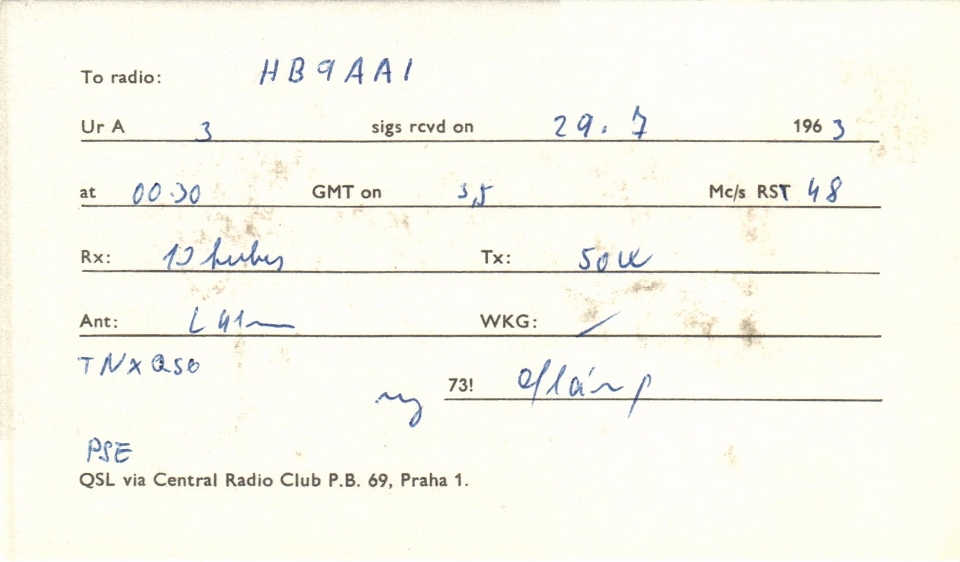 To radio: HB9AAI
Ur A 3 sigs rcvd on 29. 7 1963
at 00.30 GMT on 3,5 Mc/s RST 48
Rx: 10 tubes Tx: 50 W
Ant: L 41m WKG: /
TNX QSO
73!
PSE
QSL via Central Radio Club P.B. 69, Praha 1.